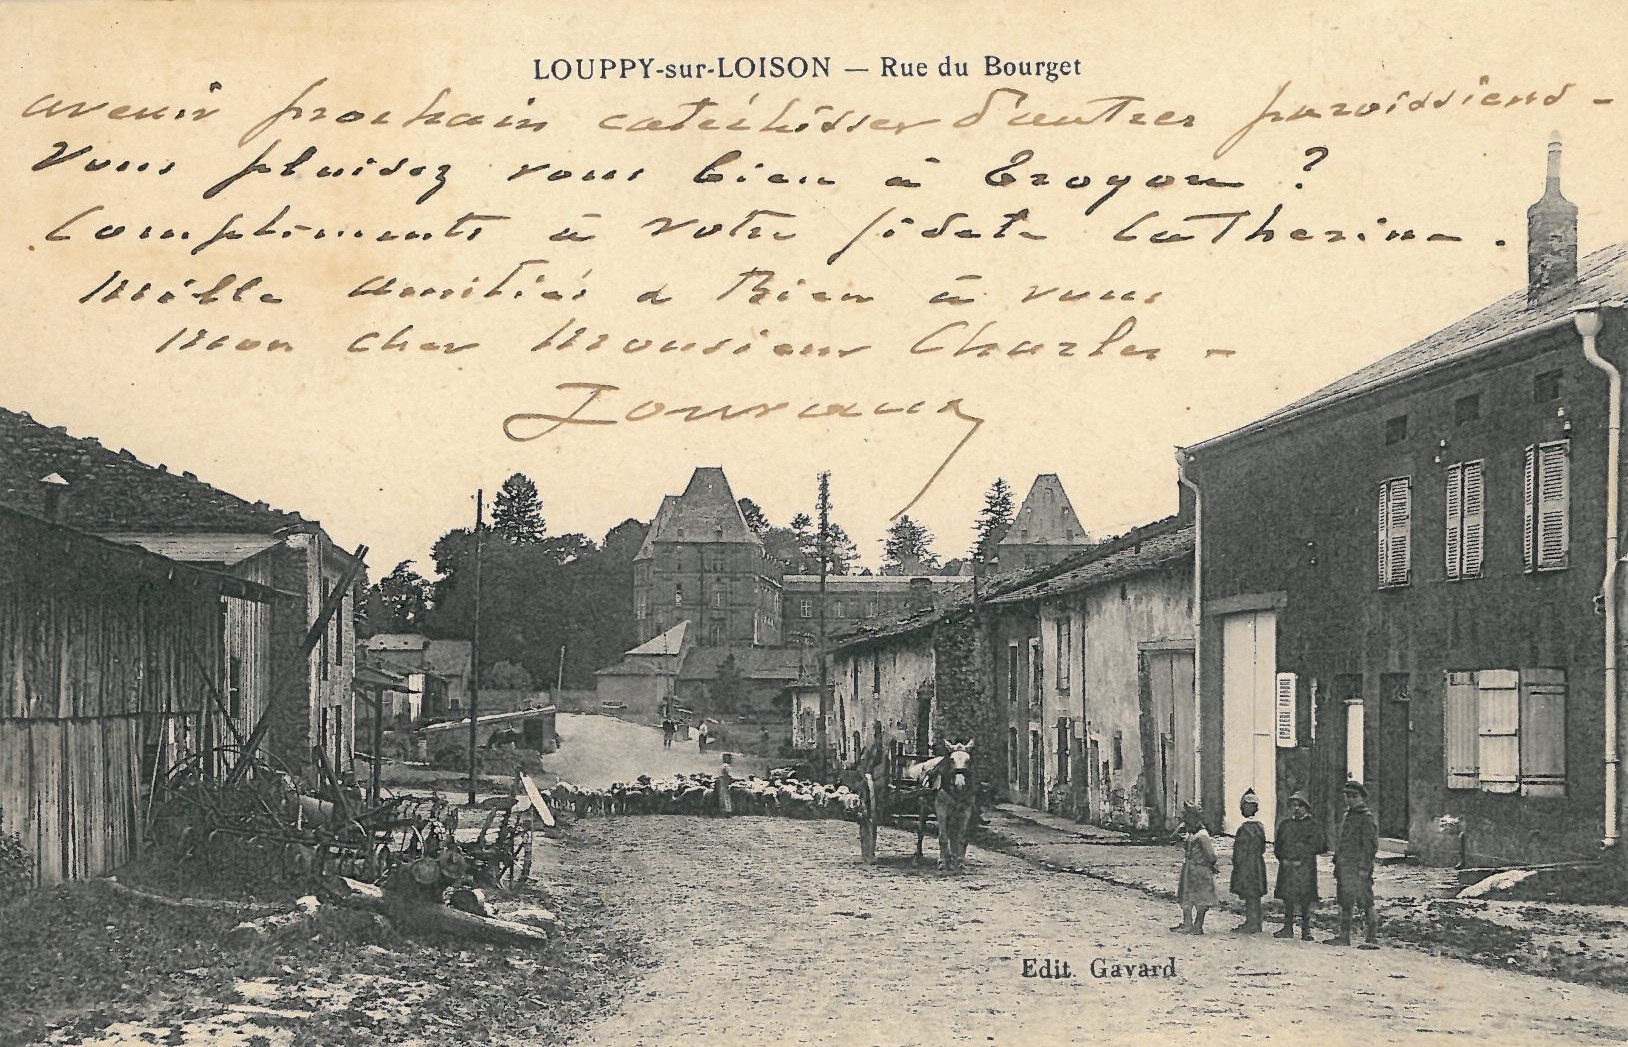 LOUPPY-sur-LOISON — Rue du Bourget
avenir prochain catéchisser d'autres paroissiens -
Vous plaisez vous bien à Troyon ?
Compliments à votre fidèle Catherine.
Mille amitiés & Bien à vous
mon cher Monsieur Charles -
Edit. Gavard